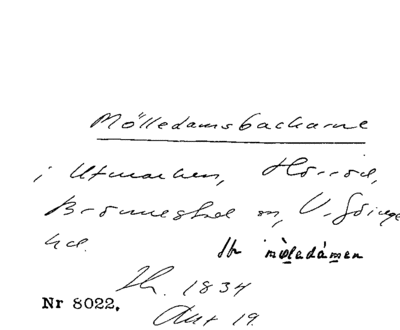 Mölledamsbackarne
i Utmarken, Hörröd,
Brönnestad sn, V. Göinge
hd. Jfr möledámen
1834
Akt 19.
Nr 8022.